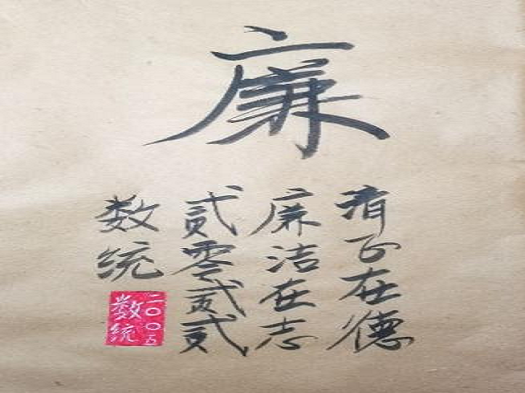 廉
清正在德
廉洁在志
贰零贰贰
数统
二〇〇五
数统